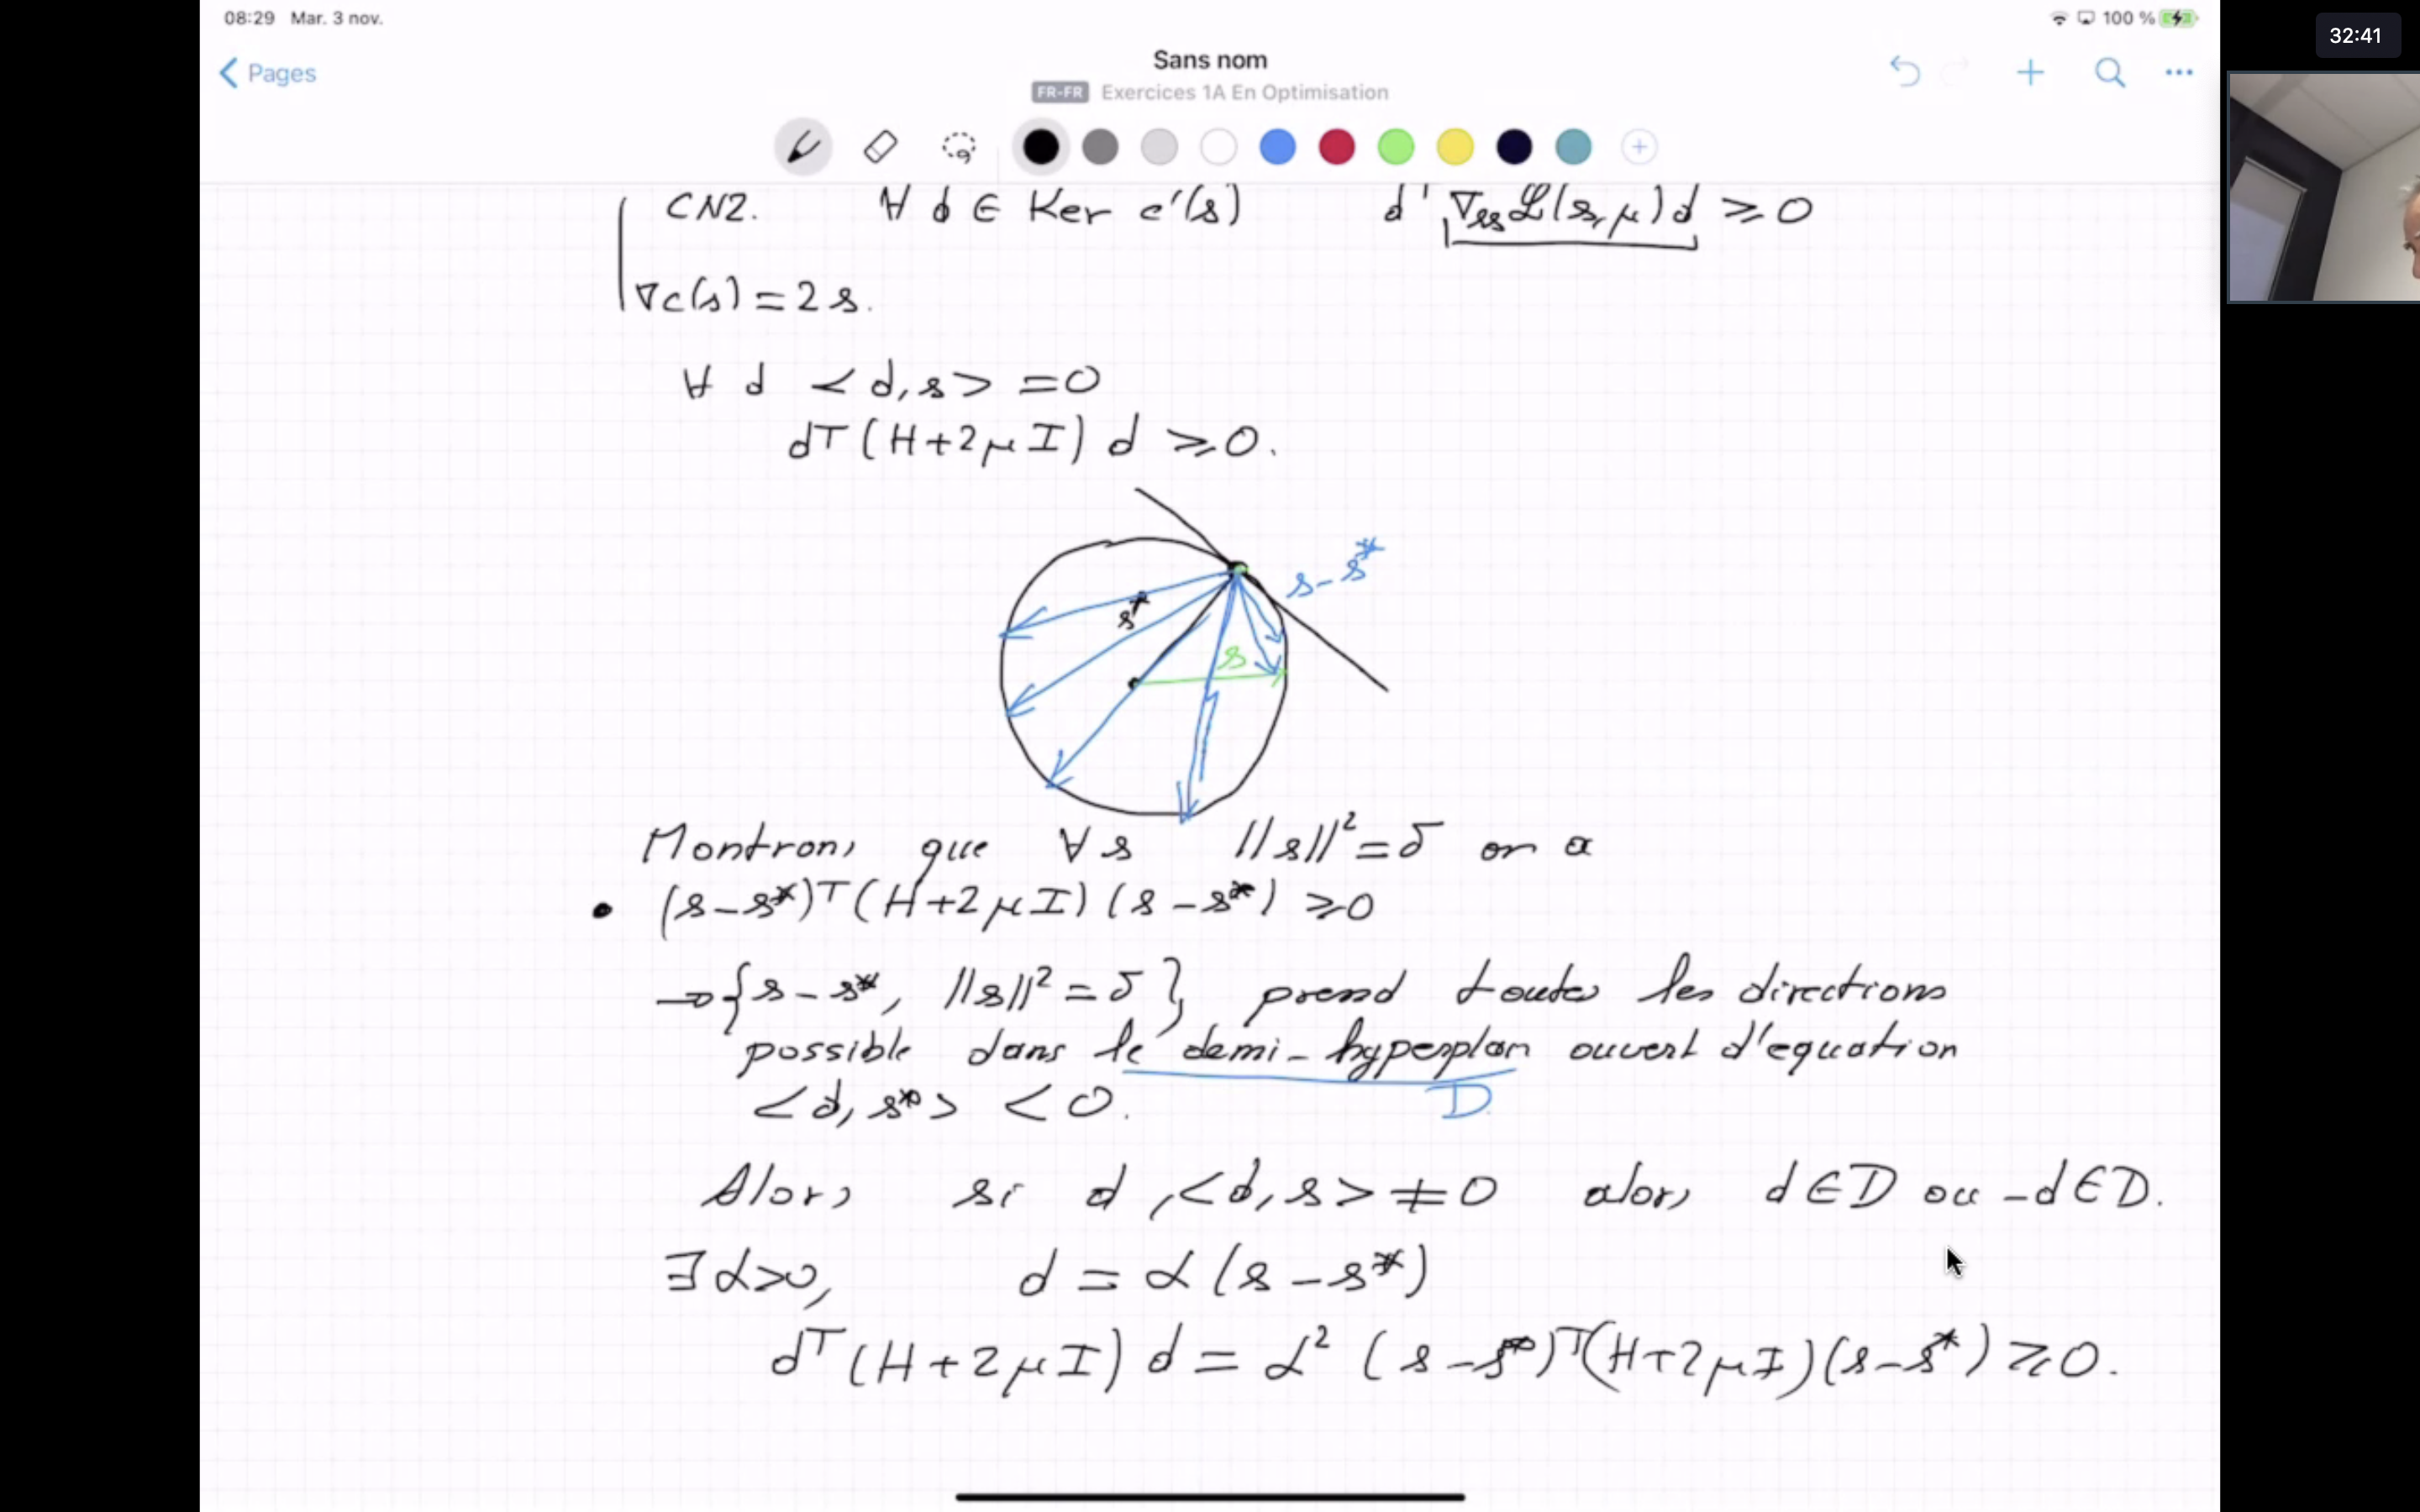 08:29 Mar. 3 nov.
100 %
32:41
Pages
Sans nom
FR-FR Exercices 1A En Optimisation
CN2. ∀ d ∈ Ker c'(s) dᵀ ∇ss ℒ(s, μ) d ≥ 0
∇c(s) = 2s.
∀ d <d, s> = 0
dᵀ (H + 2μI) d ≥ 0.
s - s*
s*
s
Montrons que ∀ s ||s||² = δ on a
• (s - s*)ᵀ (H + 2μI) (s - s*) ≥ 0
→ {s - s*, ||s||² = δ} prend toutes les directions
possible dans le demi-hyperplan ouvert d'equation
D
<d, s*> < 0.
Alors si d, <d, s> ≠ 0 alors d ∈ D ou -d ∈ D.
∃ α>0, d = α (s - s*)
dᵀ (H + 2μI) d = α² (s - s*)ᵀ (H + 2μI) (s - s*) ≥ 0.